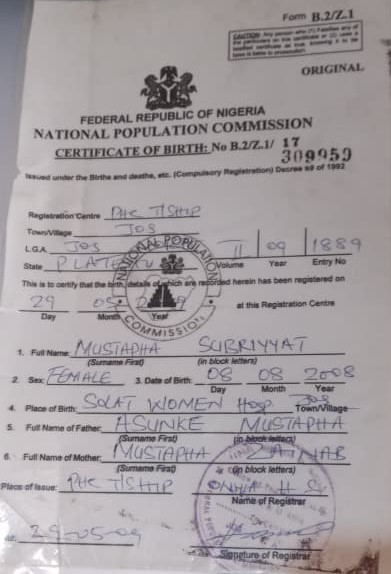 Form B.2/Z.1
CAUTION: Any person who (1) Falsifies any of
the particulars on this certificate or (2) uses a
falsified certificate as true, knowing it to be
false is liable to prosecution.
ORIGINAL
FEDERAL REPUBLIC OF NIGERIA
NATIONAL POPULATION COMMISSION
CERTIFICATE OF BIRTH: No B.2/Z.1/ 17
309959
Issued under the Births and deaths, etc. (Compulsory Registration) Decree 69 of 1992
Registration Centre PHC T/SHIP
Town/Village JOS
L.G.A. JOS II 09 1889
State PLATEAU Volume Year Entry No
NATIONAL POPULATION COMMISSION
This is to certify that the birth, details of which are recorded herein has been registered on
29 05 at this Registration Centre
Day Month Year
1. Full Name: MUSTAPHA SUBRIYYAT
(Surname First) (in block letters)
2. Sex: FEMALE 3. Date of Birth: 08 08 2008
Day Month Year
4. Place of Birth: SOLAT WOMEN Hosp. JOS Town/Village
5. Full Name of Father: ASUNKE MUSTAPHA
(Surname First) (in block letters)
6. Full Name of Mother: MUSTAPHA ZAINAB
(Surname First) (in block letters)
Place of Issue: PHC T/SHIP
Name of Registrar
29-05-09
Signature of Registrar